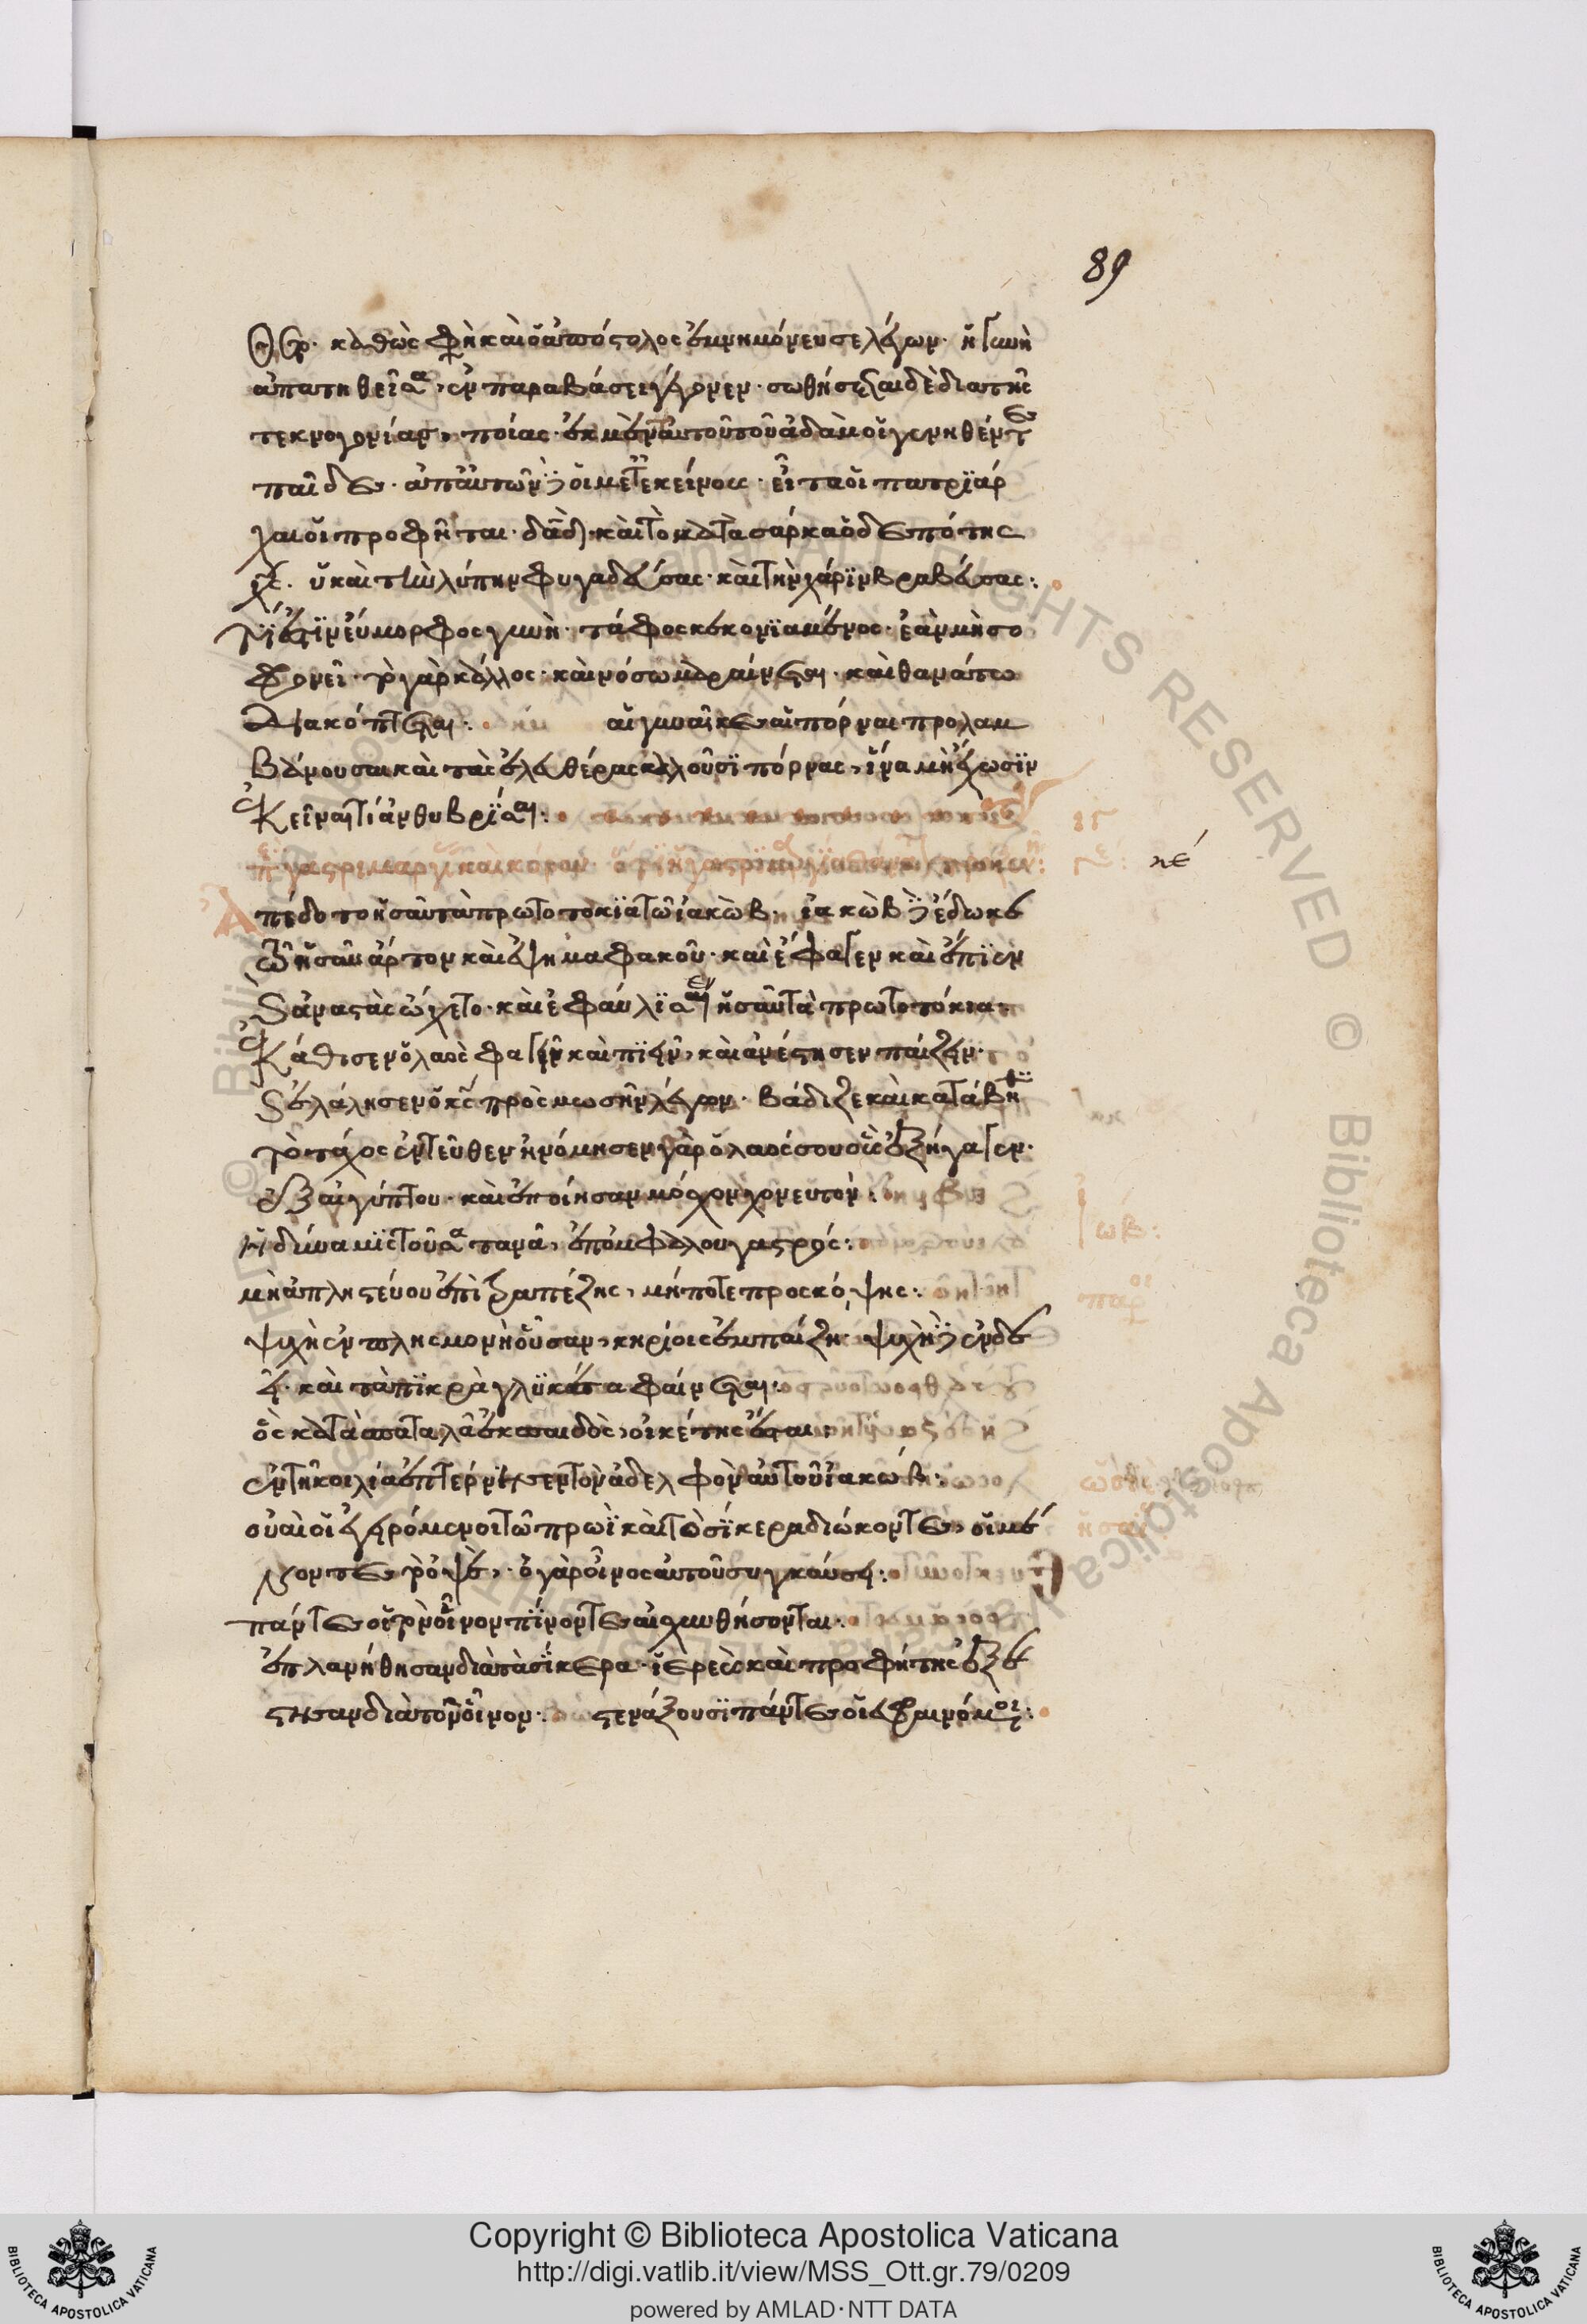 89
καθὼς φησὶ καὶ ὁ ἀπόστολος ἐμνημόνευσε λέγων· ἡ γυνὴ
ἀπατηθεῖσα, ἐν παραβάσει γέγονεν· σωθήσεται δὲ διὰ τῆς
τεκνογονίας, ποίας· ἐκ μὲν αὐτοῦ τοῦ ἀδὰμ οἱ γεννηθέντες
παῖδες· ἀπ' αὐτῶν δὲ οἱ μετ' ἐκείνους· εἶτα οἱ πατριάρ
χαι οἱ προφῆται· δαδ· καὶ τὸ κατὰ σάρκα ὁ δεσπότης
χς· ὁ καὶ τὴν λύπην φυγαδεύσας· καὶ τὴν χάριν βραβεύσας:
Τί ἐστιν εὔμορφος γυνὴ· τάφος κεκονιαμένος· ἐὰν μὴ σω
φρονεῖ· τὸ γὰρ κάλλος· καὶ νόσω μαραίνεται· καὶ θανάτω
διακόπτεται: αἱ γυναῖκες αἱ πόρναι προλαμ
βάνουσαι καὶ τὰς ἐλευθέρας καλοῦσι πόρνας, ἵνα μὴ ἔχωσιν
ἐκεῖναι τί ἀνθυβρίσαι:
κέ
Ἀπέδοτο ἡσαῦ τὰ πρωτοτόκια τῶ ἰακὼβ· ἰακὼβ δὲ ἔδωκε
τῶ ἡσαῦ ἄρτον καὶ ἕψημα φακοῦ· καὶ ἔφαγεν καὶ ἔπιεν
καὶ ἀναστὰς ὤχετο· καὶ ἐφαύλισεν ἡσαῦ τὰ πρωτοτόκια:
ἐκάθισεν ὁ λαὸς φαγεῖν καὶ πιεῖν, καὶ ἀνέστησεν παίζειν·
καὶ ἐλάλησεν ὁ κς πρὸς μωσῆν λέγων· βάδιζε καὶ κατάβηθι
τὸ τάχος ἐντεῦθεν ἠνόμησεν γὰρ ὁ λαός σου οὓς ἐξήγαγεν·
ἐξ αἰγύπτου· καὶ ἐποίησαν μόσχον χονευτὸν:
ἡ δύναμις τοῦ σατανᾶ, ἐπ' ὀμφάλου γαστρός:
μὴ ἀπληστεύου ἐπὶ τραπέζης, μήποτε προσκόψης:
ψυχὴ ἐν πλησμονὴ οὖσαν, κηρίοις ἐμπαίζη· ψυχὴ δὲ ἐνδε
εῖ· καὶ τὰ πικρὰ γλυκέα φαίνεται:
ὃς κατασπαταλᾶ ἐκ παιδὸς, οἰκέτης ἔσται:
ἐν τῆ κοιλία ἐπτέρνισεν τὸν ἀδελφὸν αὐτοῦ ἰακώβ:
οὐαὶ οἱ ἐγειρόμενοι τῶ πρωῒ καὶ τὸ σίκερα διώκοντες, οἱ μέ
νοντες τὸ ὀψὲ, ὁ γὰρ οἶνος αὐτοῦ συγκαύσει:
πάντες οἱ τὸν οἶνον πίνοντες αἰσχυνθήσονται·
ἐπλανήθησαν διὰ τὰ σίκερα· ἱερεὺς καὶ προφήτης ἐξέ
στησαν διὰ τὸν οἶνον· στενάξουσι πάντες οἱ εὐφραινόμενοι:
Copyright © Biblioteca Apostolica Vaticana
http://digi.vatlib.it/view/MSS_Ott.gr.79/0209
powered by AMLAD·NTT DATA
BIBLIOTECA APOSTOLICA VATICANA
BIBLIOTECA APOSTOLICA VATICANA